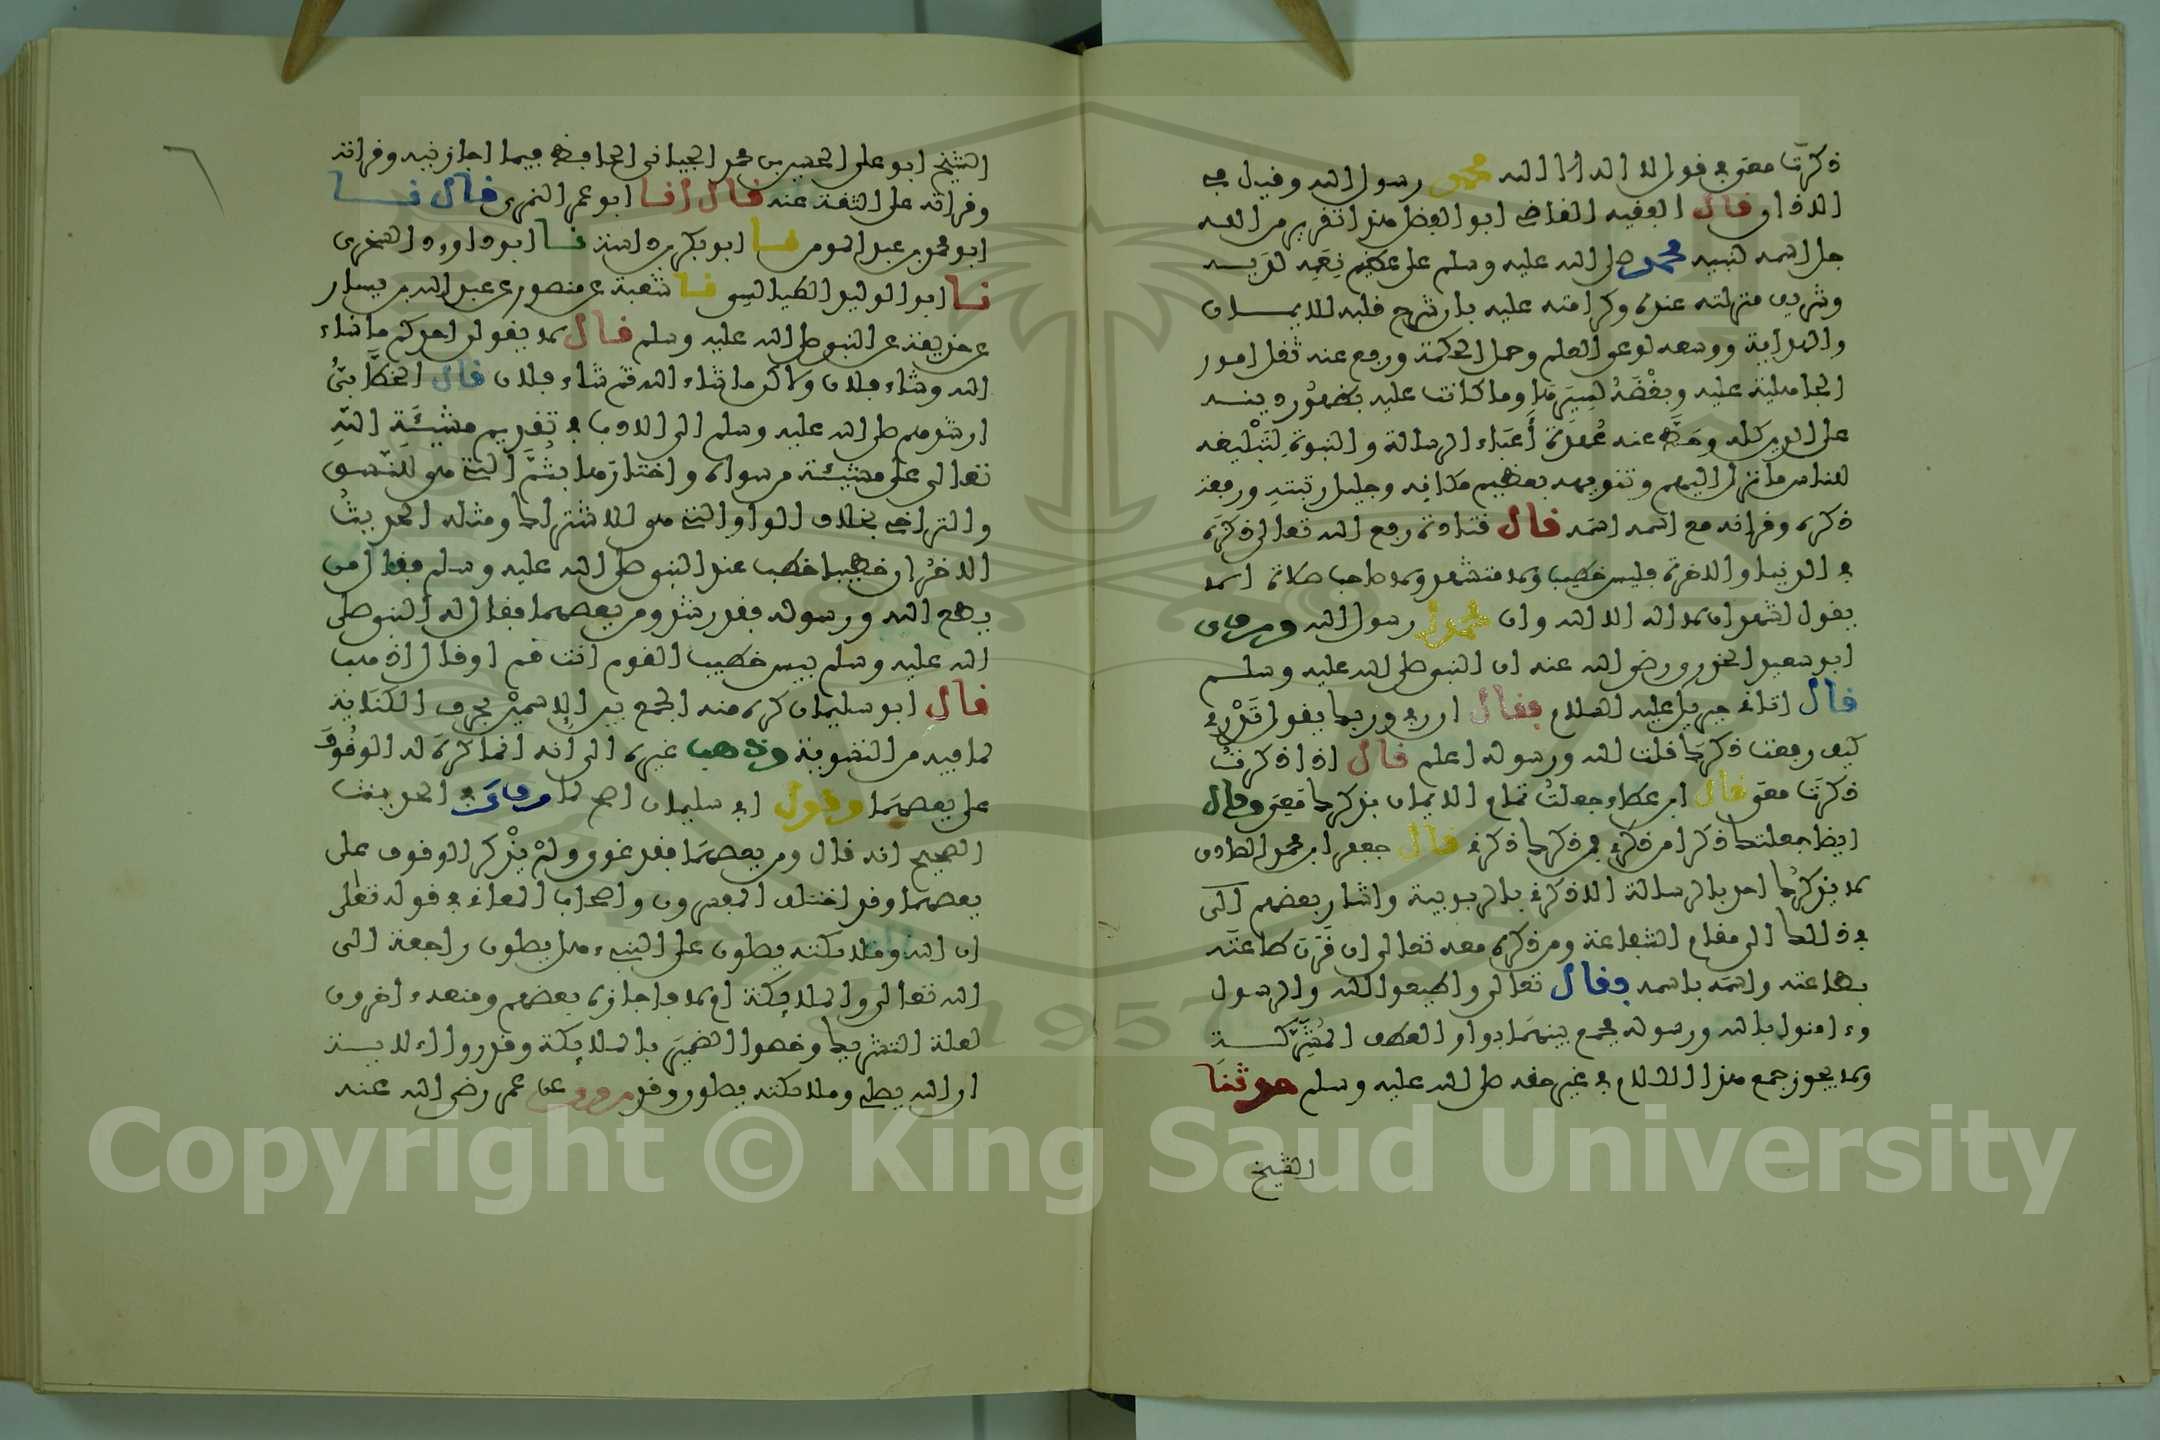 ذكرت معى فى قول لا اله الا الله محمد رسول الله وقيل فى
الاذان قال الفقيه القاضى ابو الفضل هذا تقرير من الله
جل اسمه لنبيه محمد صلى الله عليه وسلم على عظيم نعمه لديه
وشريف منزلته عنده وكرامته عليه بان شرح قلبه للايمان
والهداية ووسعه لوعى العلم وحمل الحكمة ورفع عنه ثقل امور
الجاهلية عليه وبغضه لسيرها وما كانت عليه بظهور دينه
على الدين كله وحط عنه عهدة أعباء الرسالة والنبوة لتبليغه
للناس ما نزل اليهم وتنويهه بعظيم مكانه وجليل رتبته ورفعة
ذكره وقرانه مع اسمه اسمه قال قتادة رفع الله تعالى ذكره
فى الدنيا والاخرة فليس خطيب ولا متشهد ولا صاحب صلاة الا
يقول اشهد ان لا اله الا الله وان محمدا رسول الله وروى
ابو سعيد الخدرى رضى الله عنه ان النبى صلى الله عليه وسلم
قال اتانى جبريل عليه السلام فقال ان ربى وربك يقول تدرى
كيف رفعت ذكرك قلت الله ورسوله اعلم قال اذا ذكرت
ذكرت معى قال ابن عطاء جعلت تمام الايمان بذكرك معى وقال
ايضا جعلتك ذكرا من ذكرى فمن ذكرك ذكرنى قال جعفر ابن محمد الصادق
لا يذكرك احد بالرسالة الا ذكرنى بالربوبية واشار بعضهم الى
فى ذلك الى مقام الشفاعة ومن ذكره معه تعالى ان قرن طاعته
بطاعته واسمه باسمه فقال تعالى واطيعوا الله والرسول
وءامنوا بالله ورسوله فجمع بينهما بواو العطف المشركة
ولا يجوز جمع هذا الكلام فى غير حقه صلى الله عليه وسلم حدثنا
الشيخ
الشيخ ابو على الحسين بن محمد الجيانى الحافظ فيما اجازنيه وقراته
وقراته على الثقة عنه قال انا ابو عمر النمرى قال نا
ابو محمد بن عبد المومن نا ابو بكر بن داسة نا ابو داوود السجزى
نا ابو الوليد الطيالسى نا شعبة عن منصور عن عبد الله بن يسار
عن حذيفة عن النبى صلى الله عليه وسلم قال لا يقولن احدكم ما شاء
الله وشاء فلان ولاكن ما شاء الله ثم شاء فلان قال الخطابى
ارشدهم صلى الله عليه وسلم الى الادب فى تقديم مشيئة الله
تعالى على مشيئة من سواه واختارها بثم التى هى للنسق
والتراخى بخلاف الواو التى هى للاشتراك ومثله الحديث
الاخر ان خطيبا خطب عند النبى صلى الله عليه وسلم فقال من
يطع الله ورسوله فقد رشد ومن يعصهما فقال له النبى صلى
الله عليه وسلم بيس خطيب القوم انت قم او قال اذهب
قال ابو سليمان كره منه الجمع بين الاسمين بحرف الكناية
لما فيه من التسوية وذهب غيره الى انه انما كره له الوقوف
على يعصهما وقول ابى سليمان اصح لما روى فى الحديث
الصحيح انه قال ومن يعصهما فقد غوى ولم يذكر الوقوف على
يعصهما وقد اختلف المفسرون واصحاب المعانى فى قوله تعلى
ان الله وملائكته يصلون على النبىء هل يصلون راجعة الى
الله تعالى والملائكة او لا فاجازه بعضهم ومنعه ءاخرون
لعلة التشريك وخصوا الضمير بالملائكة وقدروا الاية
ان الله يصلى وملائكته يصلون وقد روى عن عمر رضى الله عنه
Copyright © King Saud University
1957